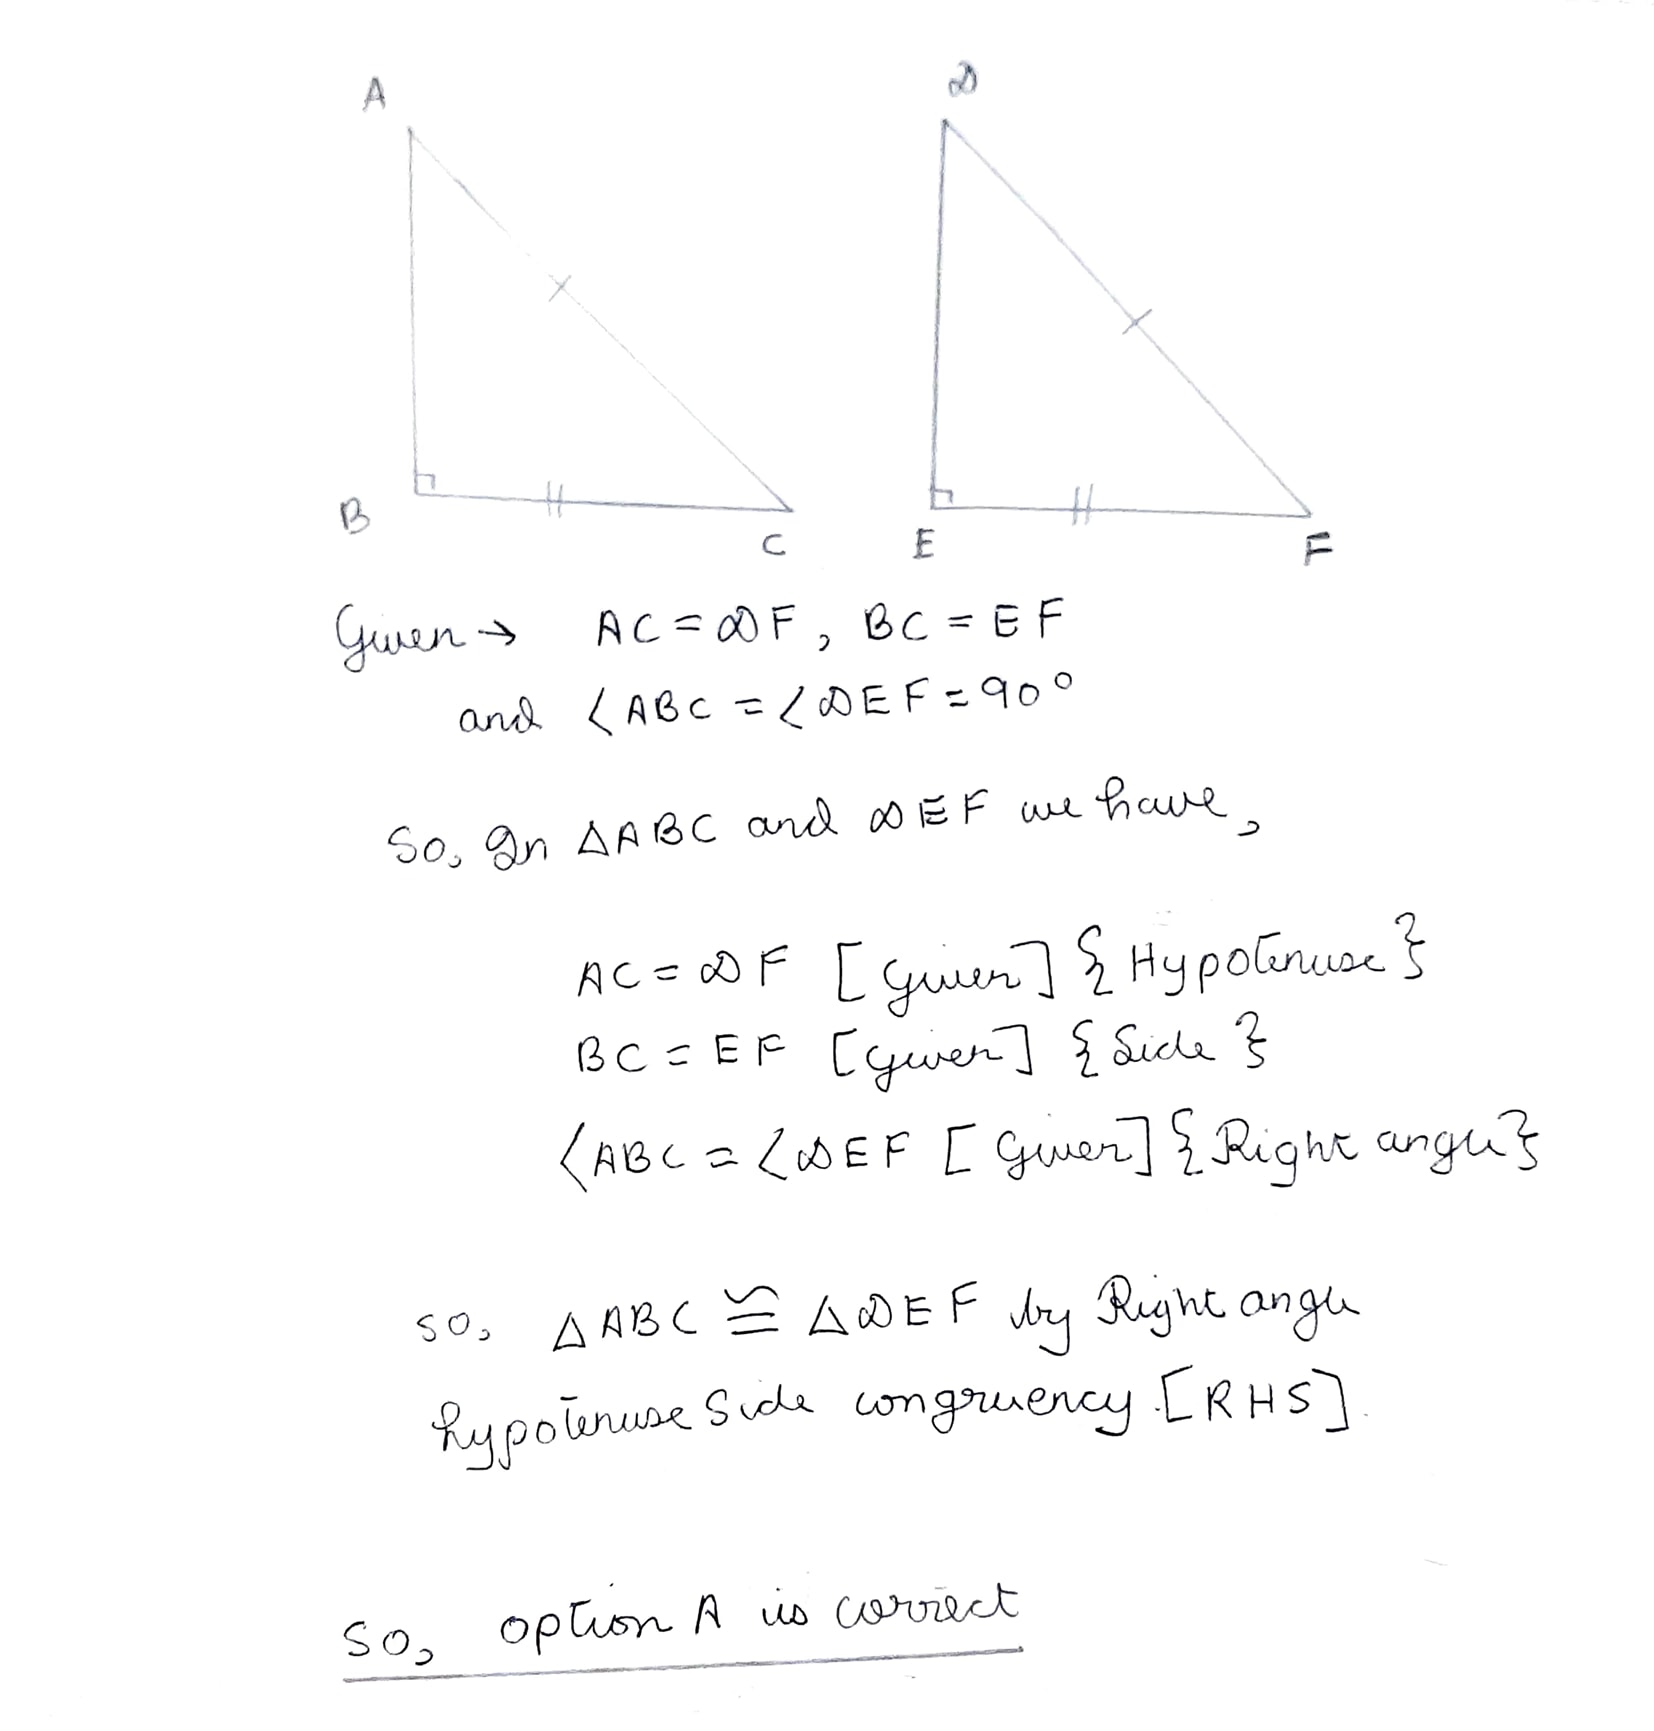 A
D
B
C
E
F
Given → AC = DF, BC = EF
and ∠ABC = ∠DEF = 90°
So, In ΔABC and DEF we have,
AC = DF [given] {Hypotenuse}
BC = EF [given] {Side}
∠ABC = ∠DEF [Given] {Right angle}
so, ΔABC ≅ ΔDEF by Right angle
hypotenuse Side congruency. [RHS].
so, option A is correct